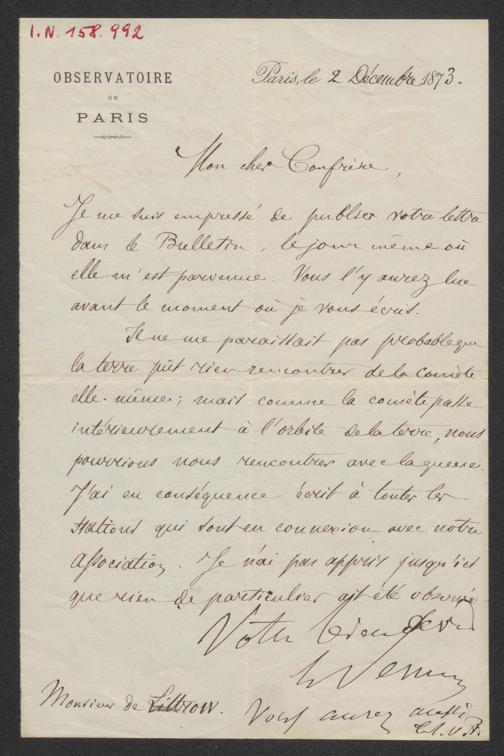 I.N. 158.992
OBSERVATOIRE
DE
PARIS
Paris, le 2 Décembre 1873.
Mon cher Confrère,
Je me suis empressé de publier votre lettre
dans le Bulletin, le jour même où
elle m'est parvenue. Vous l'y aurez lue
avant le moment où je vous écris.
Il ne me paraissait pas probable que
la terre pût rien rencontrer de la comète
elle-même; mais comme la comète passe
intérieurement à l'orbite de la terre, nous
pourrions nous rencontrer avec la queue.
J'ai en conséquence écrit à toutes les
stations qui sont en connexion avec notre
Association. Je n'ai pas appris jusqu'ici
que rien de particulier ait été observé
Votre bien dévoué
Le Verrier
Monsieur de Littrow.
Vous aurez aussi